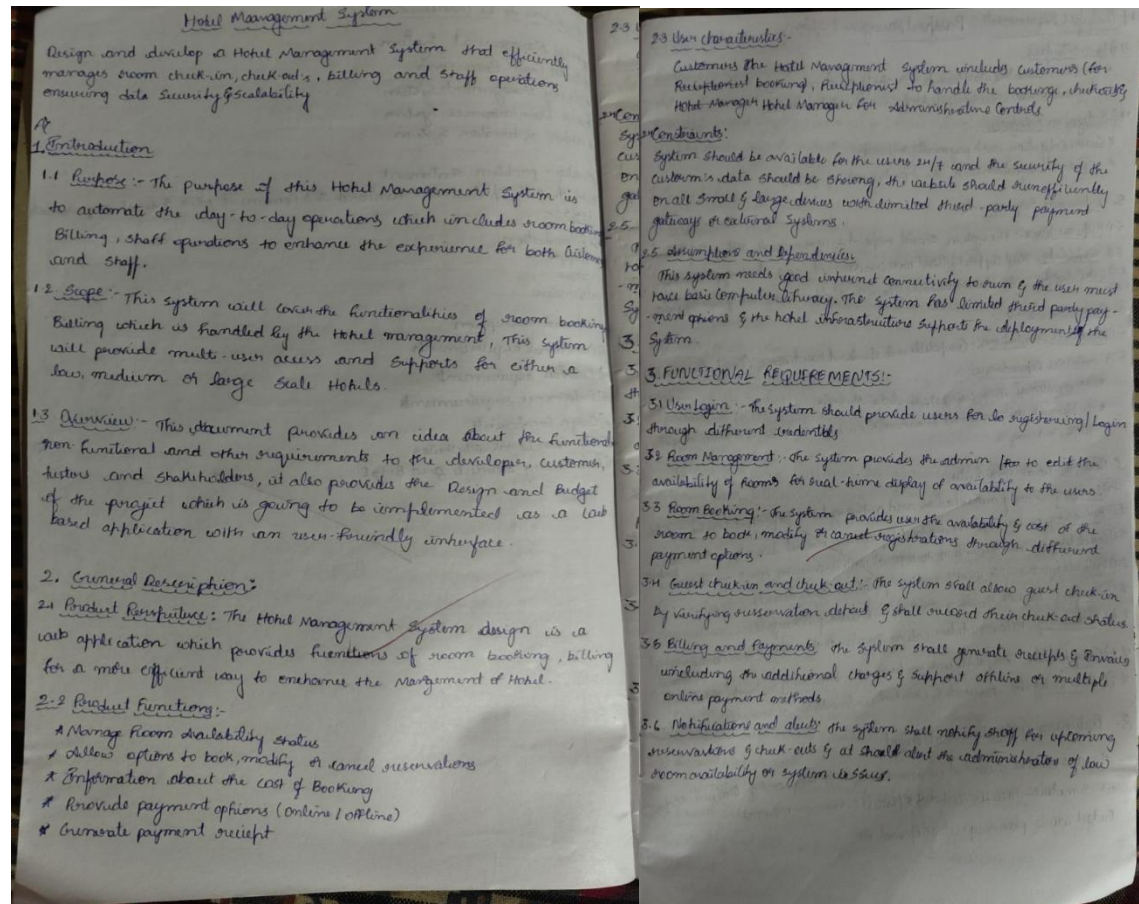 Hotel Maanagement System
Design and develop a Hotel Management System that efficiently
manages room check-in, check-out's, billing and staff operations
ensuring data Security & Scalability
1. Introduction
1.1 Purpose:- The purpose of this Hotel Management System is
to automate the day-to-day operations which includes room booking
Billing, staff operations to enhance the experience for both Customer
and staff.
1.2. Scope:- This system will cover the functionalities of room booking
Billing which is handled by the Hotel management, This system
will provide multi-user access and supports for either a
low, medium or large Scale Hotels.
1.3 Overview:- This document provides an idea about the functional
non-functional and other requirements to the developer, customer,
testers and stakeholders, it also provides the Design and Budget
of the project which is going to be implemented as a web
based application with an user-friendly interface.
2. General Description:
2.1 Product Perspective: The Hotel Management System design is a
web application which provides functions of room booking, billing
for a more efficient way to enchance the Mangement of Hotel.
2.2 Product Functions:-
* Manage Room Availability Status
* Allow options to book, modify or cancel reservations
* Information about the cost of Booking
* Provide payment options (online/offline)
* Generate payment reciept
2.3 User characteristics:-
Customers the Hotel Management System includes customers (for
booking), Receptionist to handle the bookings, checkouts &
Hotel Manager for Administrative Controls
2.4 Constraints:
System should be available for the users 24/7 and the security of the
custom's data should be strong, the website should run efficiently
on all small & large devices with limited third-party payment
gateways or external Systems.
2.5 Assumptions and Dependencies.
This system needs good internet connectivity to run & the user must
have basic Computer literacy. The system has limited third party pay-
-ment options & the hotel infrastructure supports the deployment of the
System.
3. FUNCTIONAL REQUEREMENTS:-
3.1 User Login:- The system should provide users for to registering/Login
through different credentials
3.2 Room Management:- The system provides the admin to edit the
availability of Rooms for real-time display of availability to the users
3.3 Room Booking:- The system provides user the availability & cost of the
room to book, modify or cancel registrations through different
payment options.
3.4 Guest check-in and check-out:- The system shall allow guest check-in
by verifying resservation detail & shall record their check-out status.
3.5 Billing and Payments: the system shall generate receipts & Invoices
including the additional charges & support offline or multiple
online payment methods.
3.6. Notifications and alerts: the system shall notify staff for upcoming
reservations & check-outs & at should alert the administrator of low
room availability or system issues.